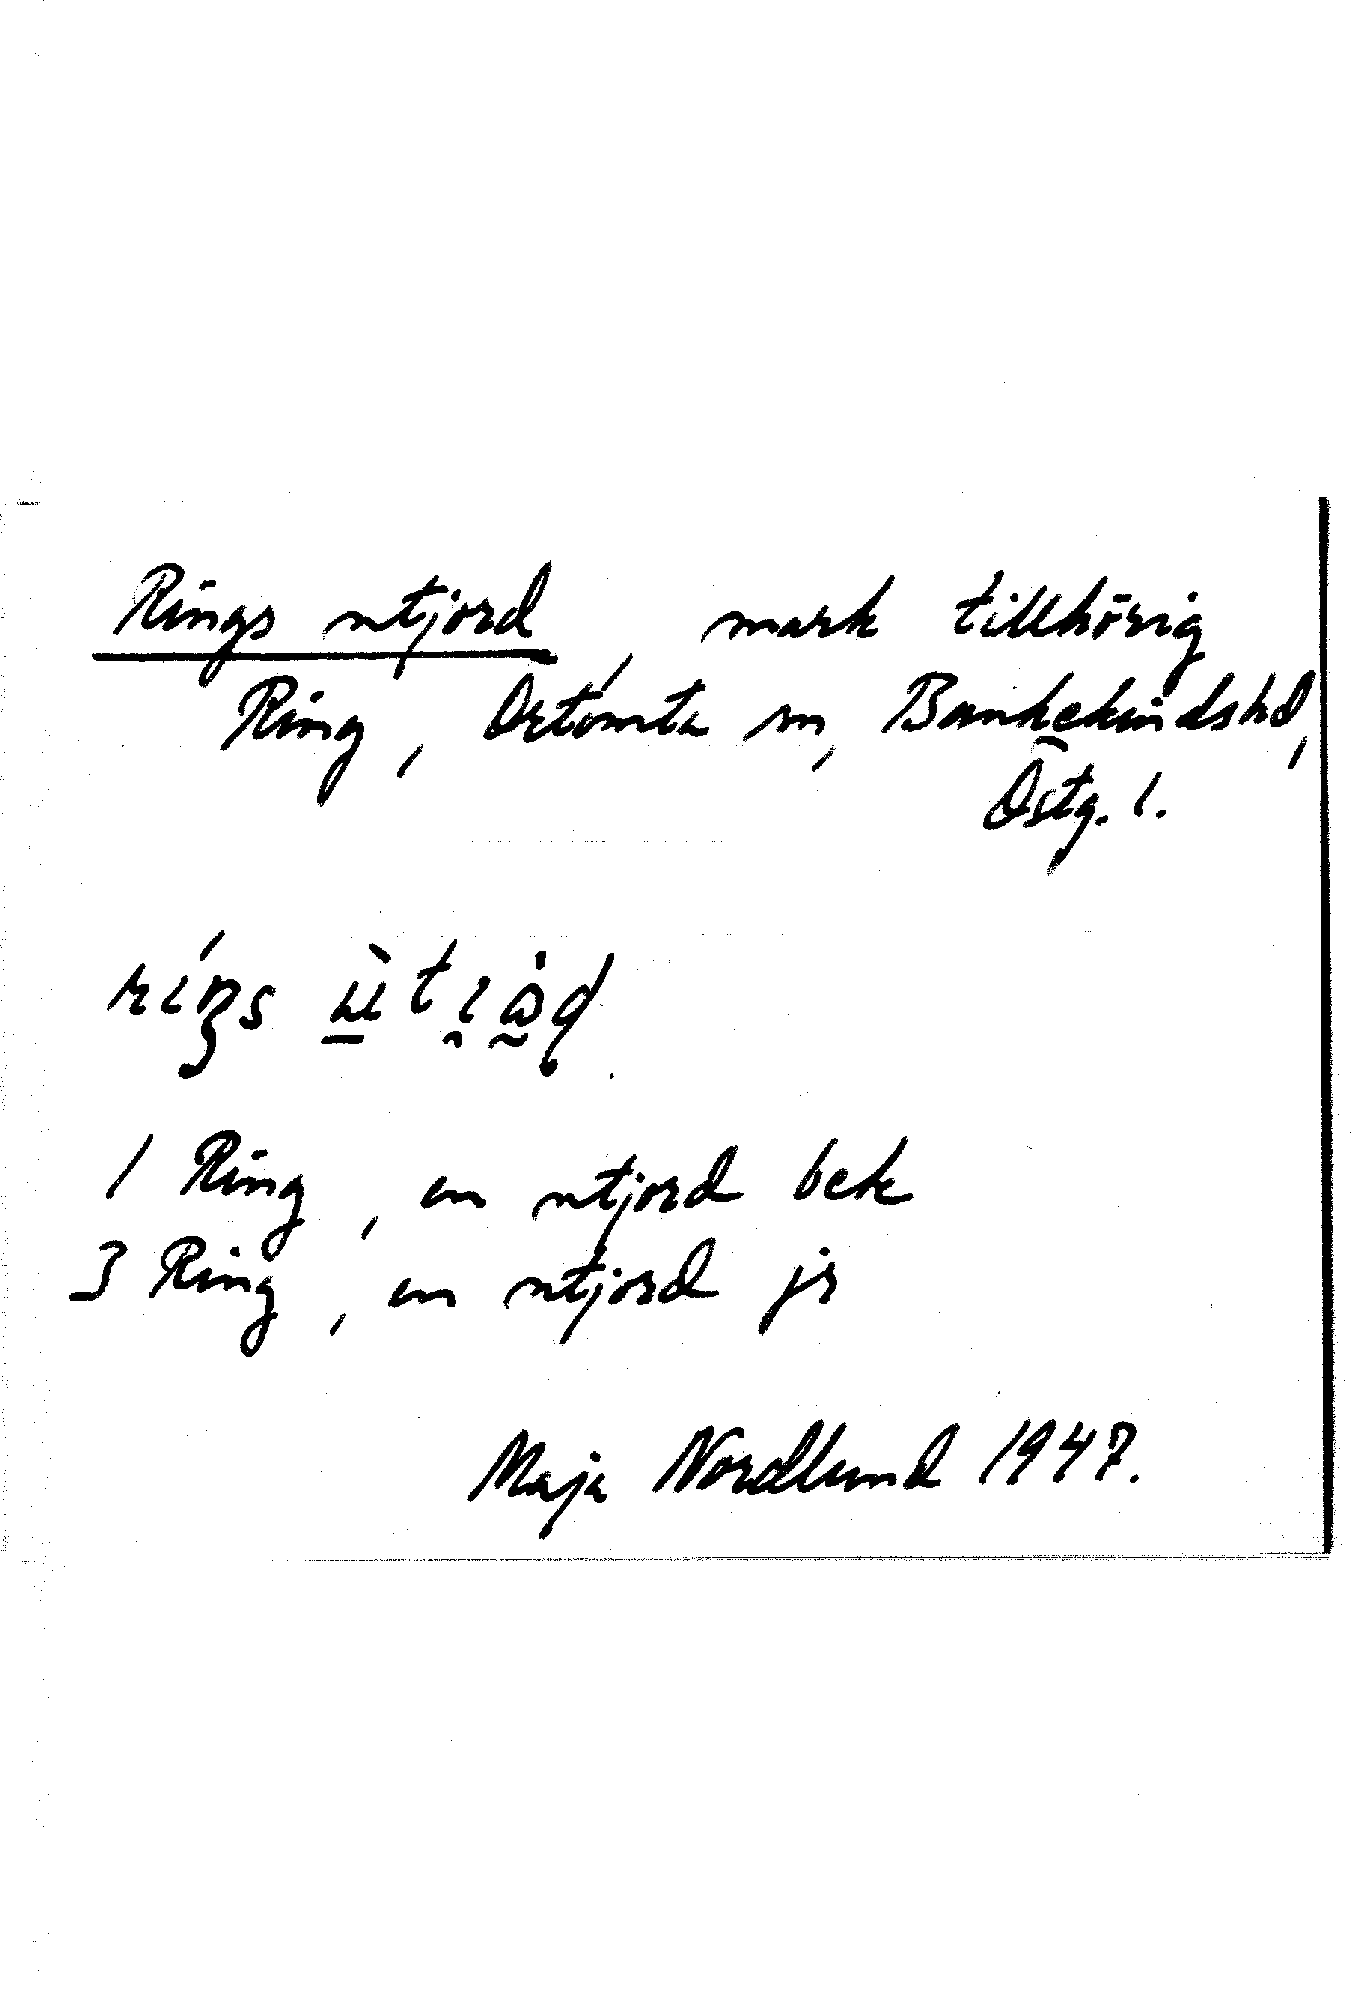 Rings utjord, mark tillhörig
Ring, Örtomta sn, Bankekindshd,
Östg. l.
ríŋs ùtjåd
1 Ring, en utjord bek
3 Ring, en utjord js
Maja Nordlund 1947.